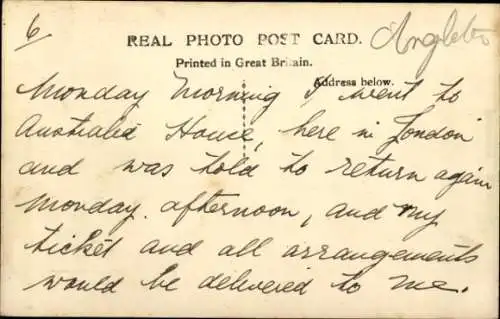 6
REAL PHOTO POST CARD.
Printed in Great Britain.
Address below.
Monday Morning I went to
Australia House, here in London
and was told to return again
Monday afternoon, and my
ticket and all arrangements
would be delivered to me.